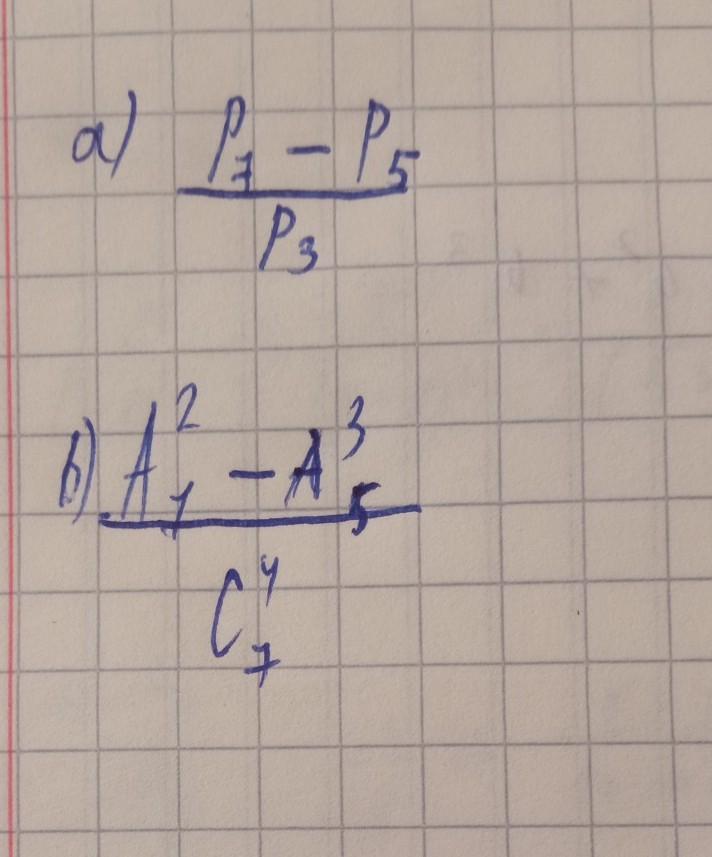 a) P₇ − P₅
P₃
b) A₇² − A₅³
C₇⁴